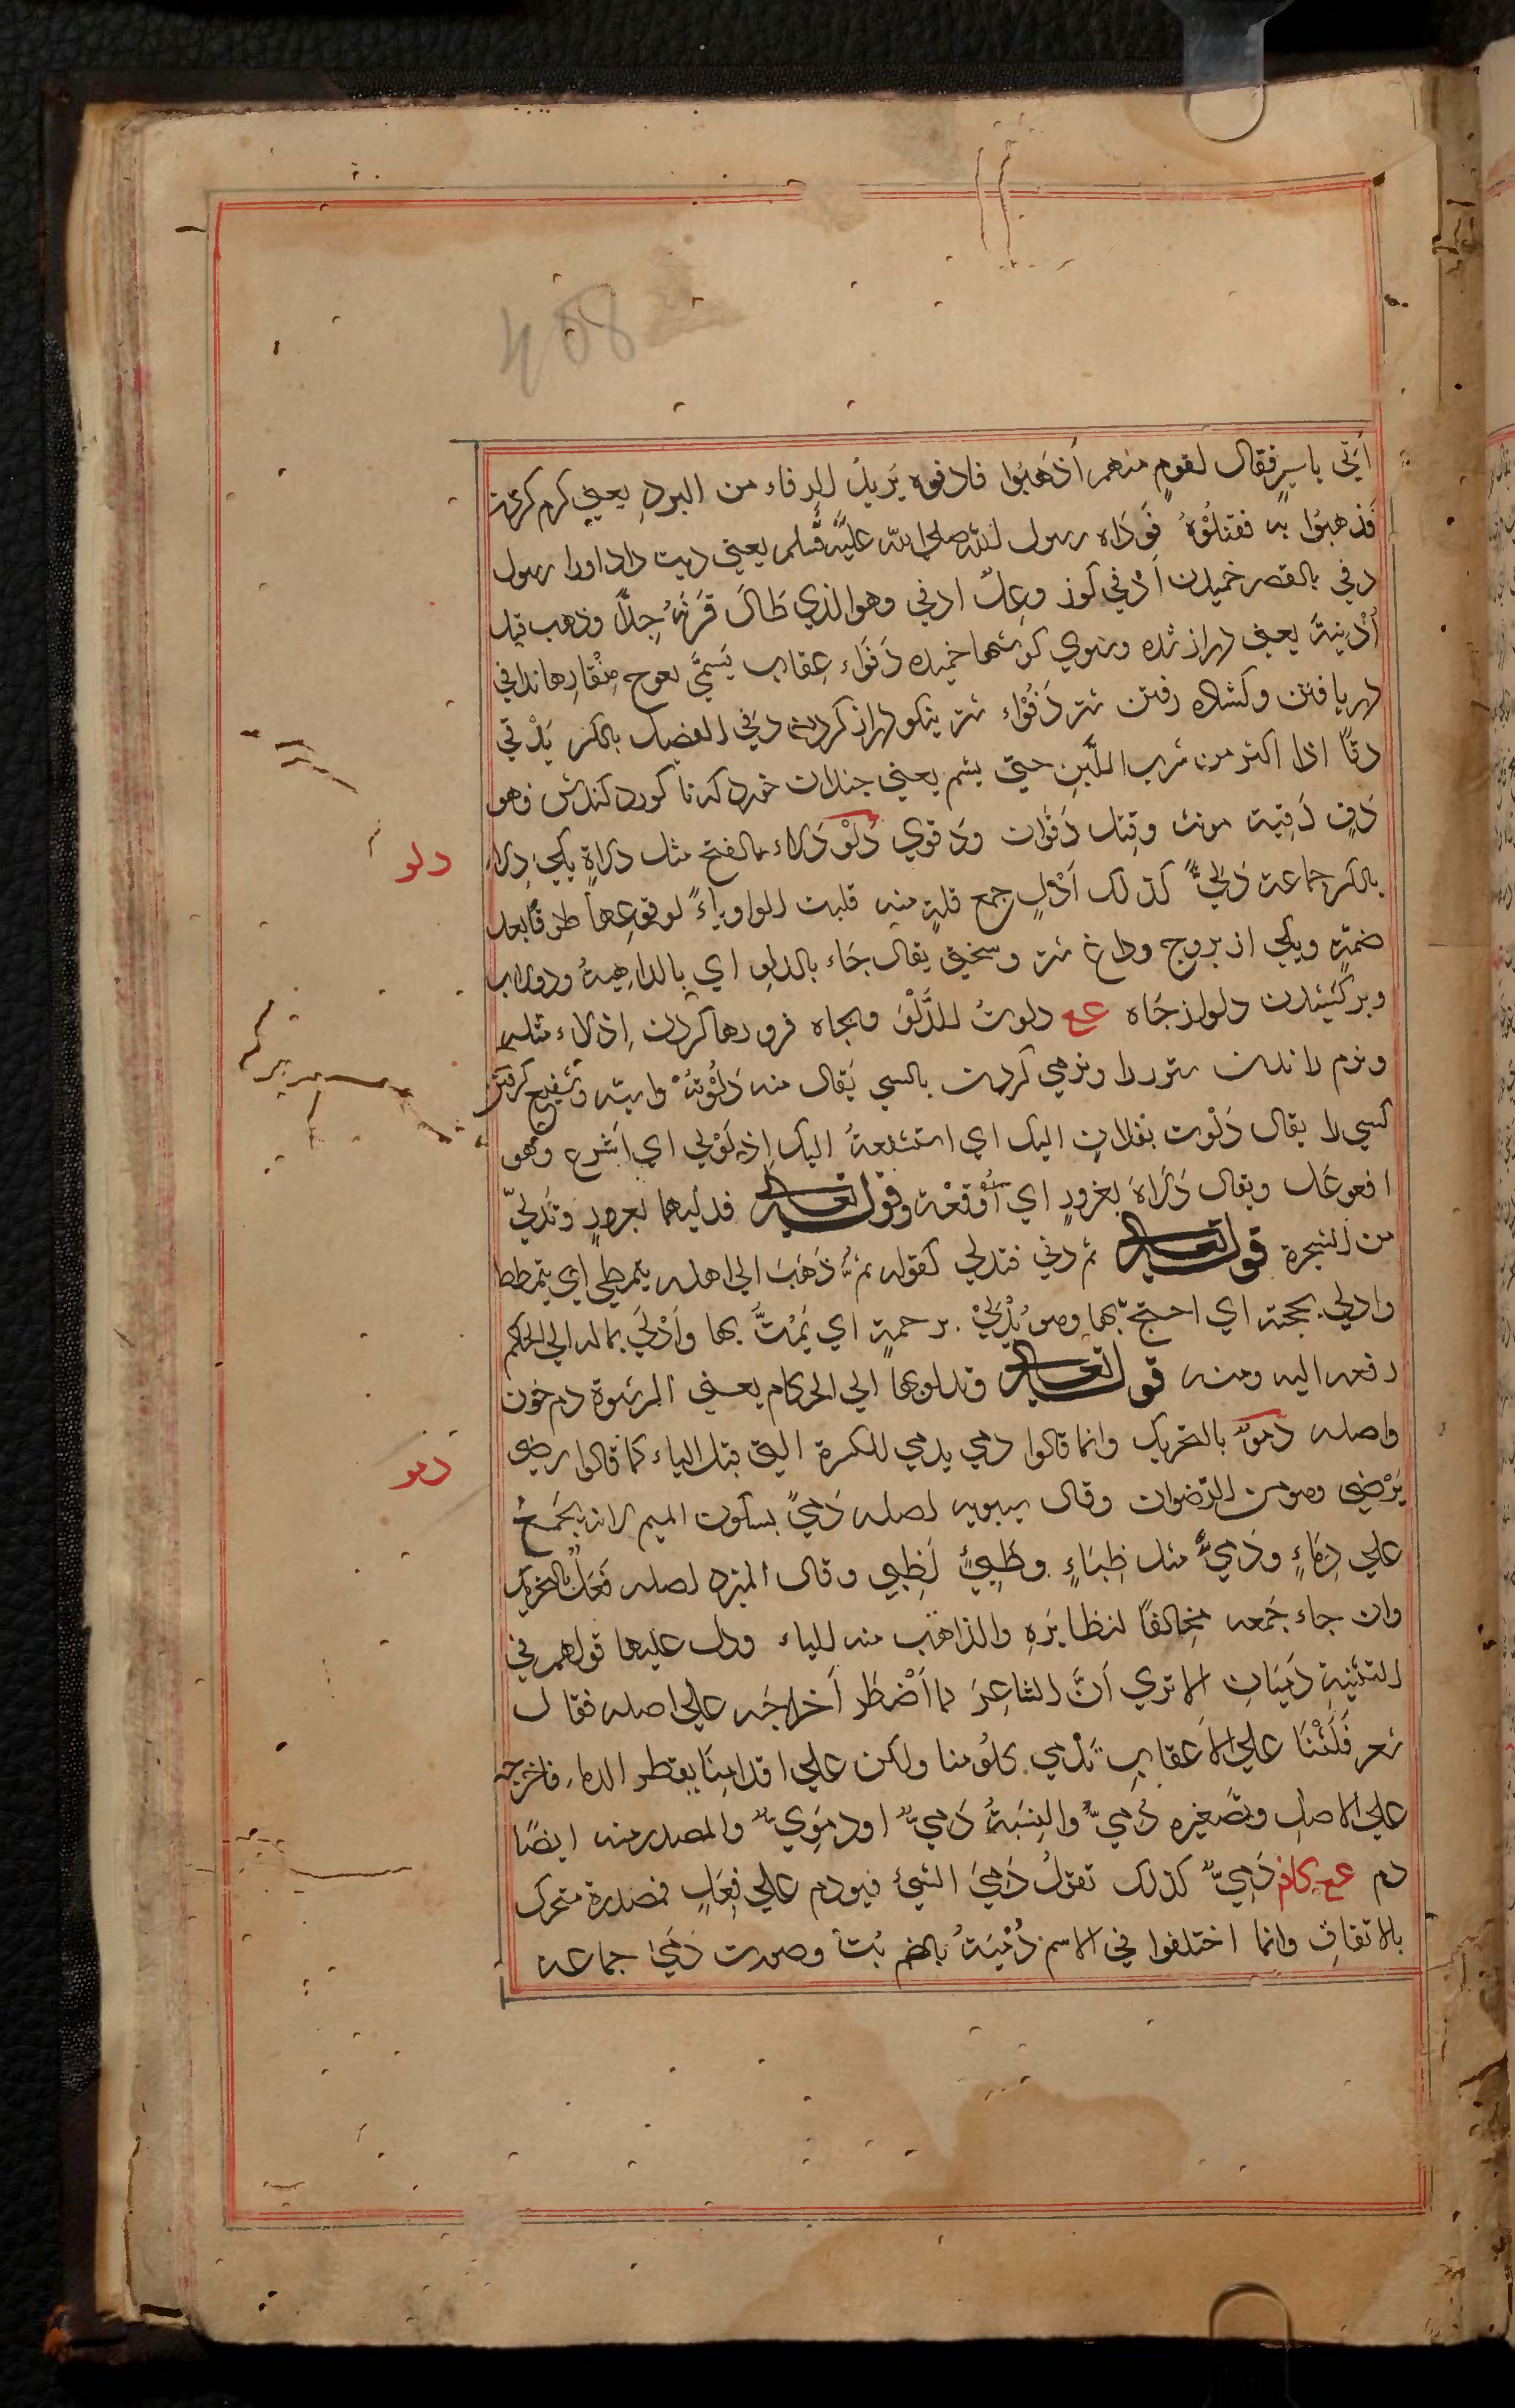 408
أتي باسير فقال لقوم منهم أذهبوا فادفوه يريد الدفاء من البرد يعني كرم كردن
فذهبوا به فقتلوه فوداه رسول الله صلي الله عليه وسلم يعني ديت داد اورا رسول
دفي بالقصر خميدن أدفي كوز وعل ادفي وهو الذي طال قرنه جدا وذهب قبل
أذنيه يعني دراز شده وبسوي كوشها خميده دفواء عقاب يسمي لعوج منقارها تدافي
دريافتن وكشاده رفتن شتر دفواء شتر نيكو دراز كردن دقي الفصيل بالكسر يدقي
دقا اذا اكثر من شرب اللبن حتي بشم يعني جندان خورد كه ناكورد كندش فهو
دق دقية مونث وقيل دقوان ودقوي دلو دلاء بالفتح مثل دلاة يكي دلاء
دلو
بالكسر جماعة دلي كذلك أدل جمع قلة منه قلبت الواو ياء لوقوعها طرفا بعد
ضمة ويكي از بروج وداغ شتر وسختي يقال جاء بالدلو اي بالداهية ودولاب
وبركشيدن دلو از جاه عع دلوت الدلو وبجاه فرو رها كردن إدلاء مثله
ونرم راندن ستور را ونرمي كردن بالسي يقال منه دلوته وابته وشفيع كرفتن
كسي را يقال دلوت بفلان اليك اي استشفعة اليك إدلولي اي أسرع وهو
افعوعل ويقال دلاه بغرور اي أوقعة وقوله تعالي فدليهما بغرور وتدلي
من الشجرة قوله تعالي ثم دني فتدلي كقوله ثم ذهب الي اهله يتمطي اي يتمطط
وادلي بحجته اي احتج بها وهو يدلي برحمة اي يمت بها وأدلي بماله الي الحكم
دفعه اليه ومنه قوله تعالي وتدلوها الي الحكام يعني الرشوة دم خون
واصله دمو بالتحريك وانما قالوا دمي يدمي للكسرة التي قبل الياء كما قالوا رضي
دمو
يرضي وهو من الرضوان وقال سيبويه اصله دمي بسكون الميم لانه يجمع
علي دماء ودمي مثل ظباء وظبي لظبي وقال المبرد اصله فعل بالتحريك
وان جاء جمعه مخالفا لنظايره والذاهب منه الياء ودل عليها قولهم في
التثنية دميان الا تري أن الشاعر لما أضطر أخراجه علي اصله فقال
شعر فلسنا علي الاعقاب تدمي كلومنا ولكن علي اقدامنا يقطر الدما فاخرجه
علي الاصل وتصغيره دمي والنسبة دمي او دموي والمصدر منه ايضا
دم عع كام دمي كذلك تقول دمي الشيئ فيو دم علي فعل فمصدرة متحرك
بالاتفاق وانما اختلفوا في الاسم دمية بالضم بت وصورت دمي جماعة